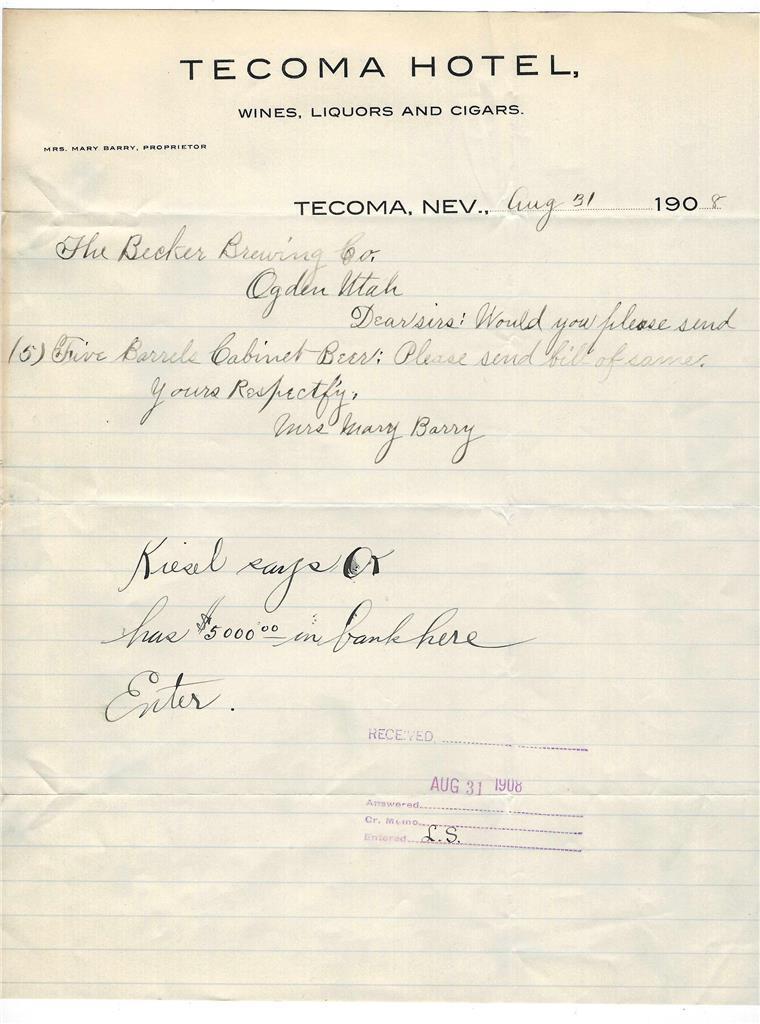 TECOMA HOTEL,
WINES, LIQUORS AND CIGARS.
MRS. MARY BARRY, PROPRIETOR
TECOMA, NEV., Aug 31 1908
The Becker Brewing Co.
Ogden Utah
Dear sirs: Would you please send
(5) Five Barrels Cabinet Beer; Please send bill of same.
Yours Respectf'y,
Mrs Mary Barry
Kiesel says OK
has $5000.00 in bank here
Enter.
RECEIVED
AUG 31 1908
Answered
Cr. Memo
Entered L.S.